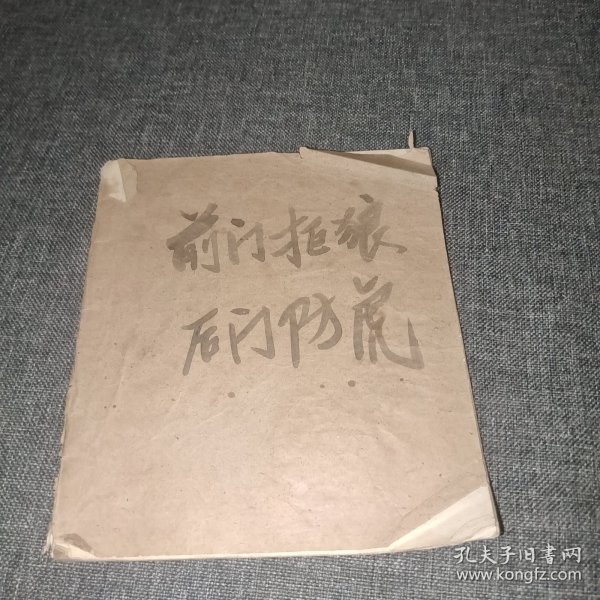 前门拒狼
后门防虎
孔夫子旧书网
www.kongfz.com